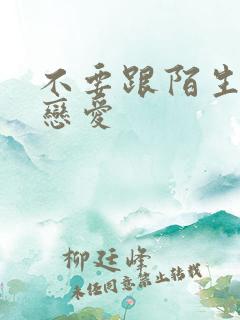 不要跟陌生
戀愛
柳廷峰
未任同意禁止轉載